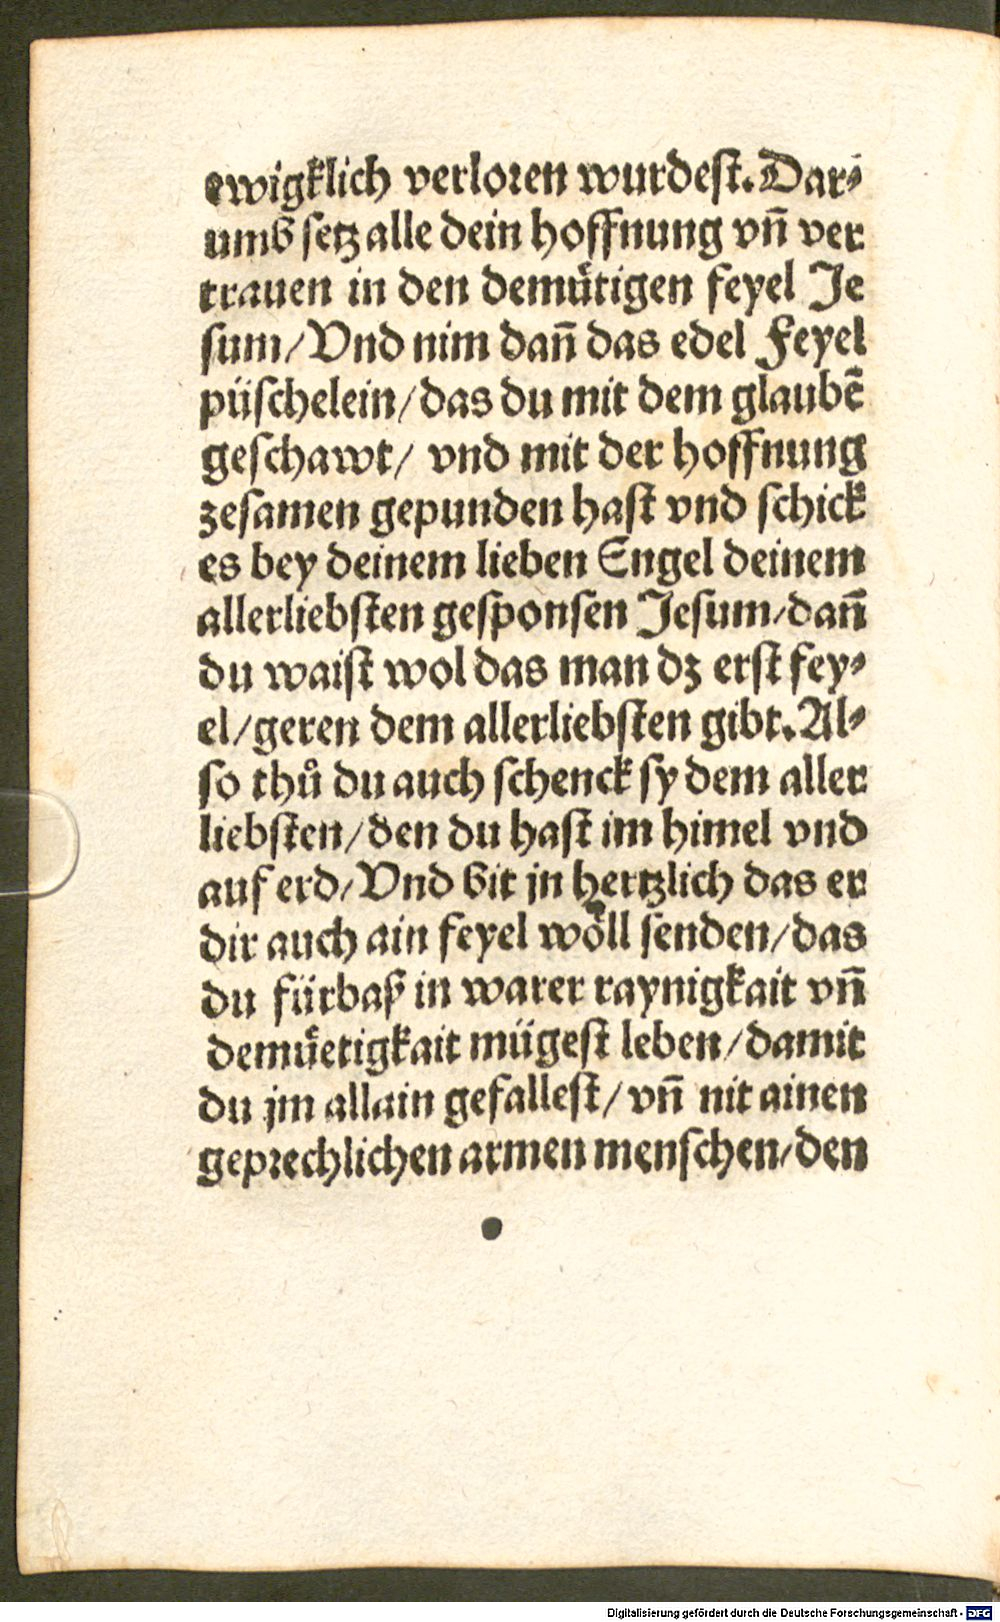 ewigklich verloren wurdest. Dar⸗
umb setz alle dein hoffnung vñ ver
trauen in den demuͤtigen feyel Je
sum/Vnd nim dañ das edel Feyel
püschelein/das du mit dem glaubē
geschawt/ vnd mit der hoffnung
zesamen gepunden hast vnd schick
es bey deinem lieben Engel deinem
allerliebsten gesponsen Jesum/dañ
du waist wol das man dz erst fey⸗
el/geren dem allerliebsten gibt. Al⸗
so thuͦ du auch schenck sy dem aller
liebsten/den du hast im himel vnd
auf erd/Vnd bit jn hertzlich das er
dir auch ain feyel woͤll senden/das
du fürbaß in warer raynigkait vñ
demuͤetigkait mügest leben/damit
du jm allain gefallest/ vñ nit ainen
geprechlichen armen menschen/den
Digitalisierung gefördert durch die Deutsche Forschungsgemeinschaft - DFG